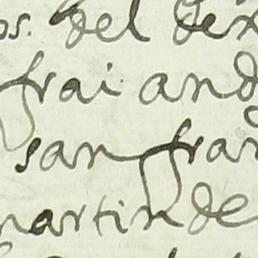 os. del de
frai and
san fran
martin de